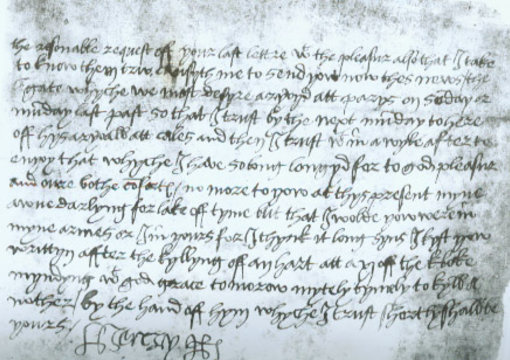 the resonable request off your last lettre wt the pleasur also that I take
to know them trw causyth me to send yow now thes news the
legate whyche we most desyre aryvyd att parys on sonday or
munday last past so that I trust by the next munday to here
off hys aryvall att cales and then I trust wt in a wyle after to
enyoy that whyche I have so long longyd for to god pleasur
and oure bothe cofort no more to yow at thys present myne
awne darlyng for lake off tyme but that I wolde yow were in
myne armes or I in yours for I thynk it long syns I kyst yow
writtyn affter the kyllyng off an hart att a xj off the kloke
myndyng wt god grace to morow mytely tymely to kyll a
nother by the hand off hym whyche I trust shortly shalbe
yours
Henry R